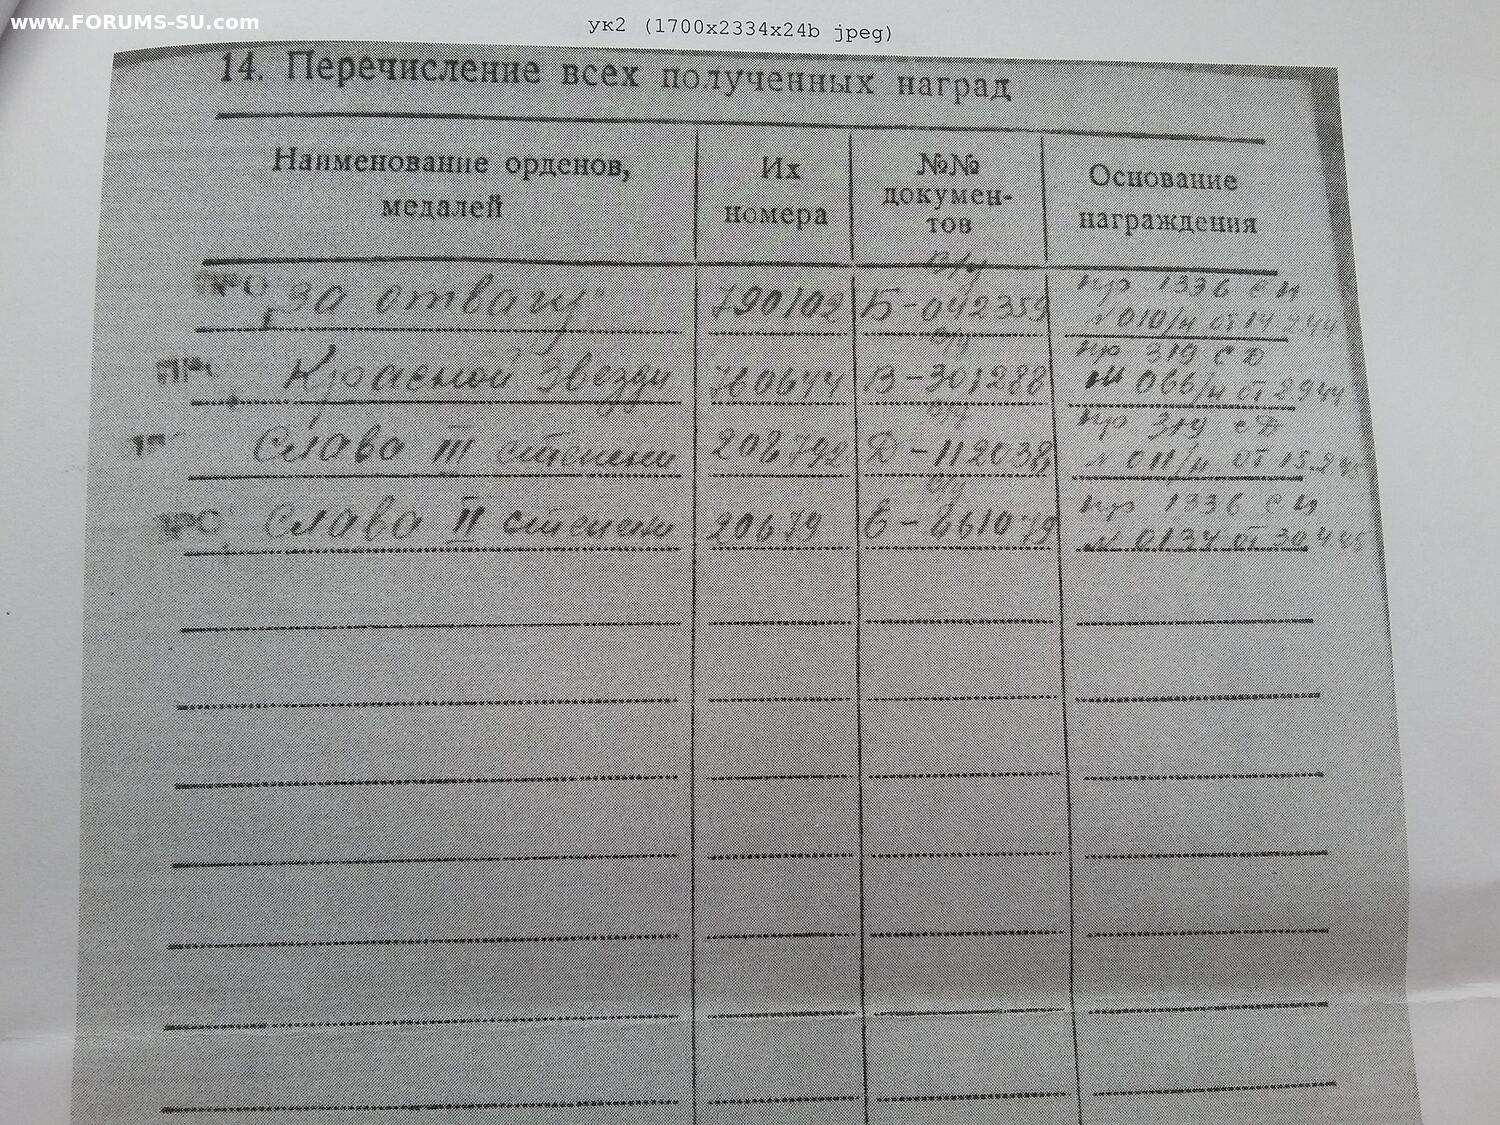 www.FORUMS-SU.com
ук2 (1700x2334x24b jpeg)
14. Перечисление всех полученных наград
Наименование орденов, медалей
Их номера
№№ докумен-
тов
Основание награждения
за отвагу 790102 Б-042359 пр 1336 СП
N 010/н от 14.2.44
Красной Звезды 760644 В-301288 пр 319 СД
N 066/н от 2.9.44
Слава III степени 208792 Д-112038 пр 319 СД
N 011/н от 15.2
Слава II степени 20679 Е-661079 пр 1336 СП
N 0134 от 30.4.45